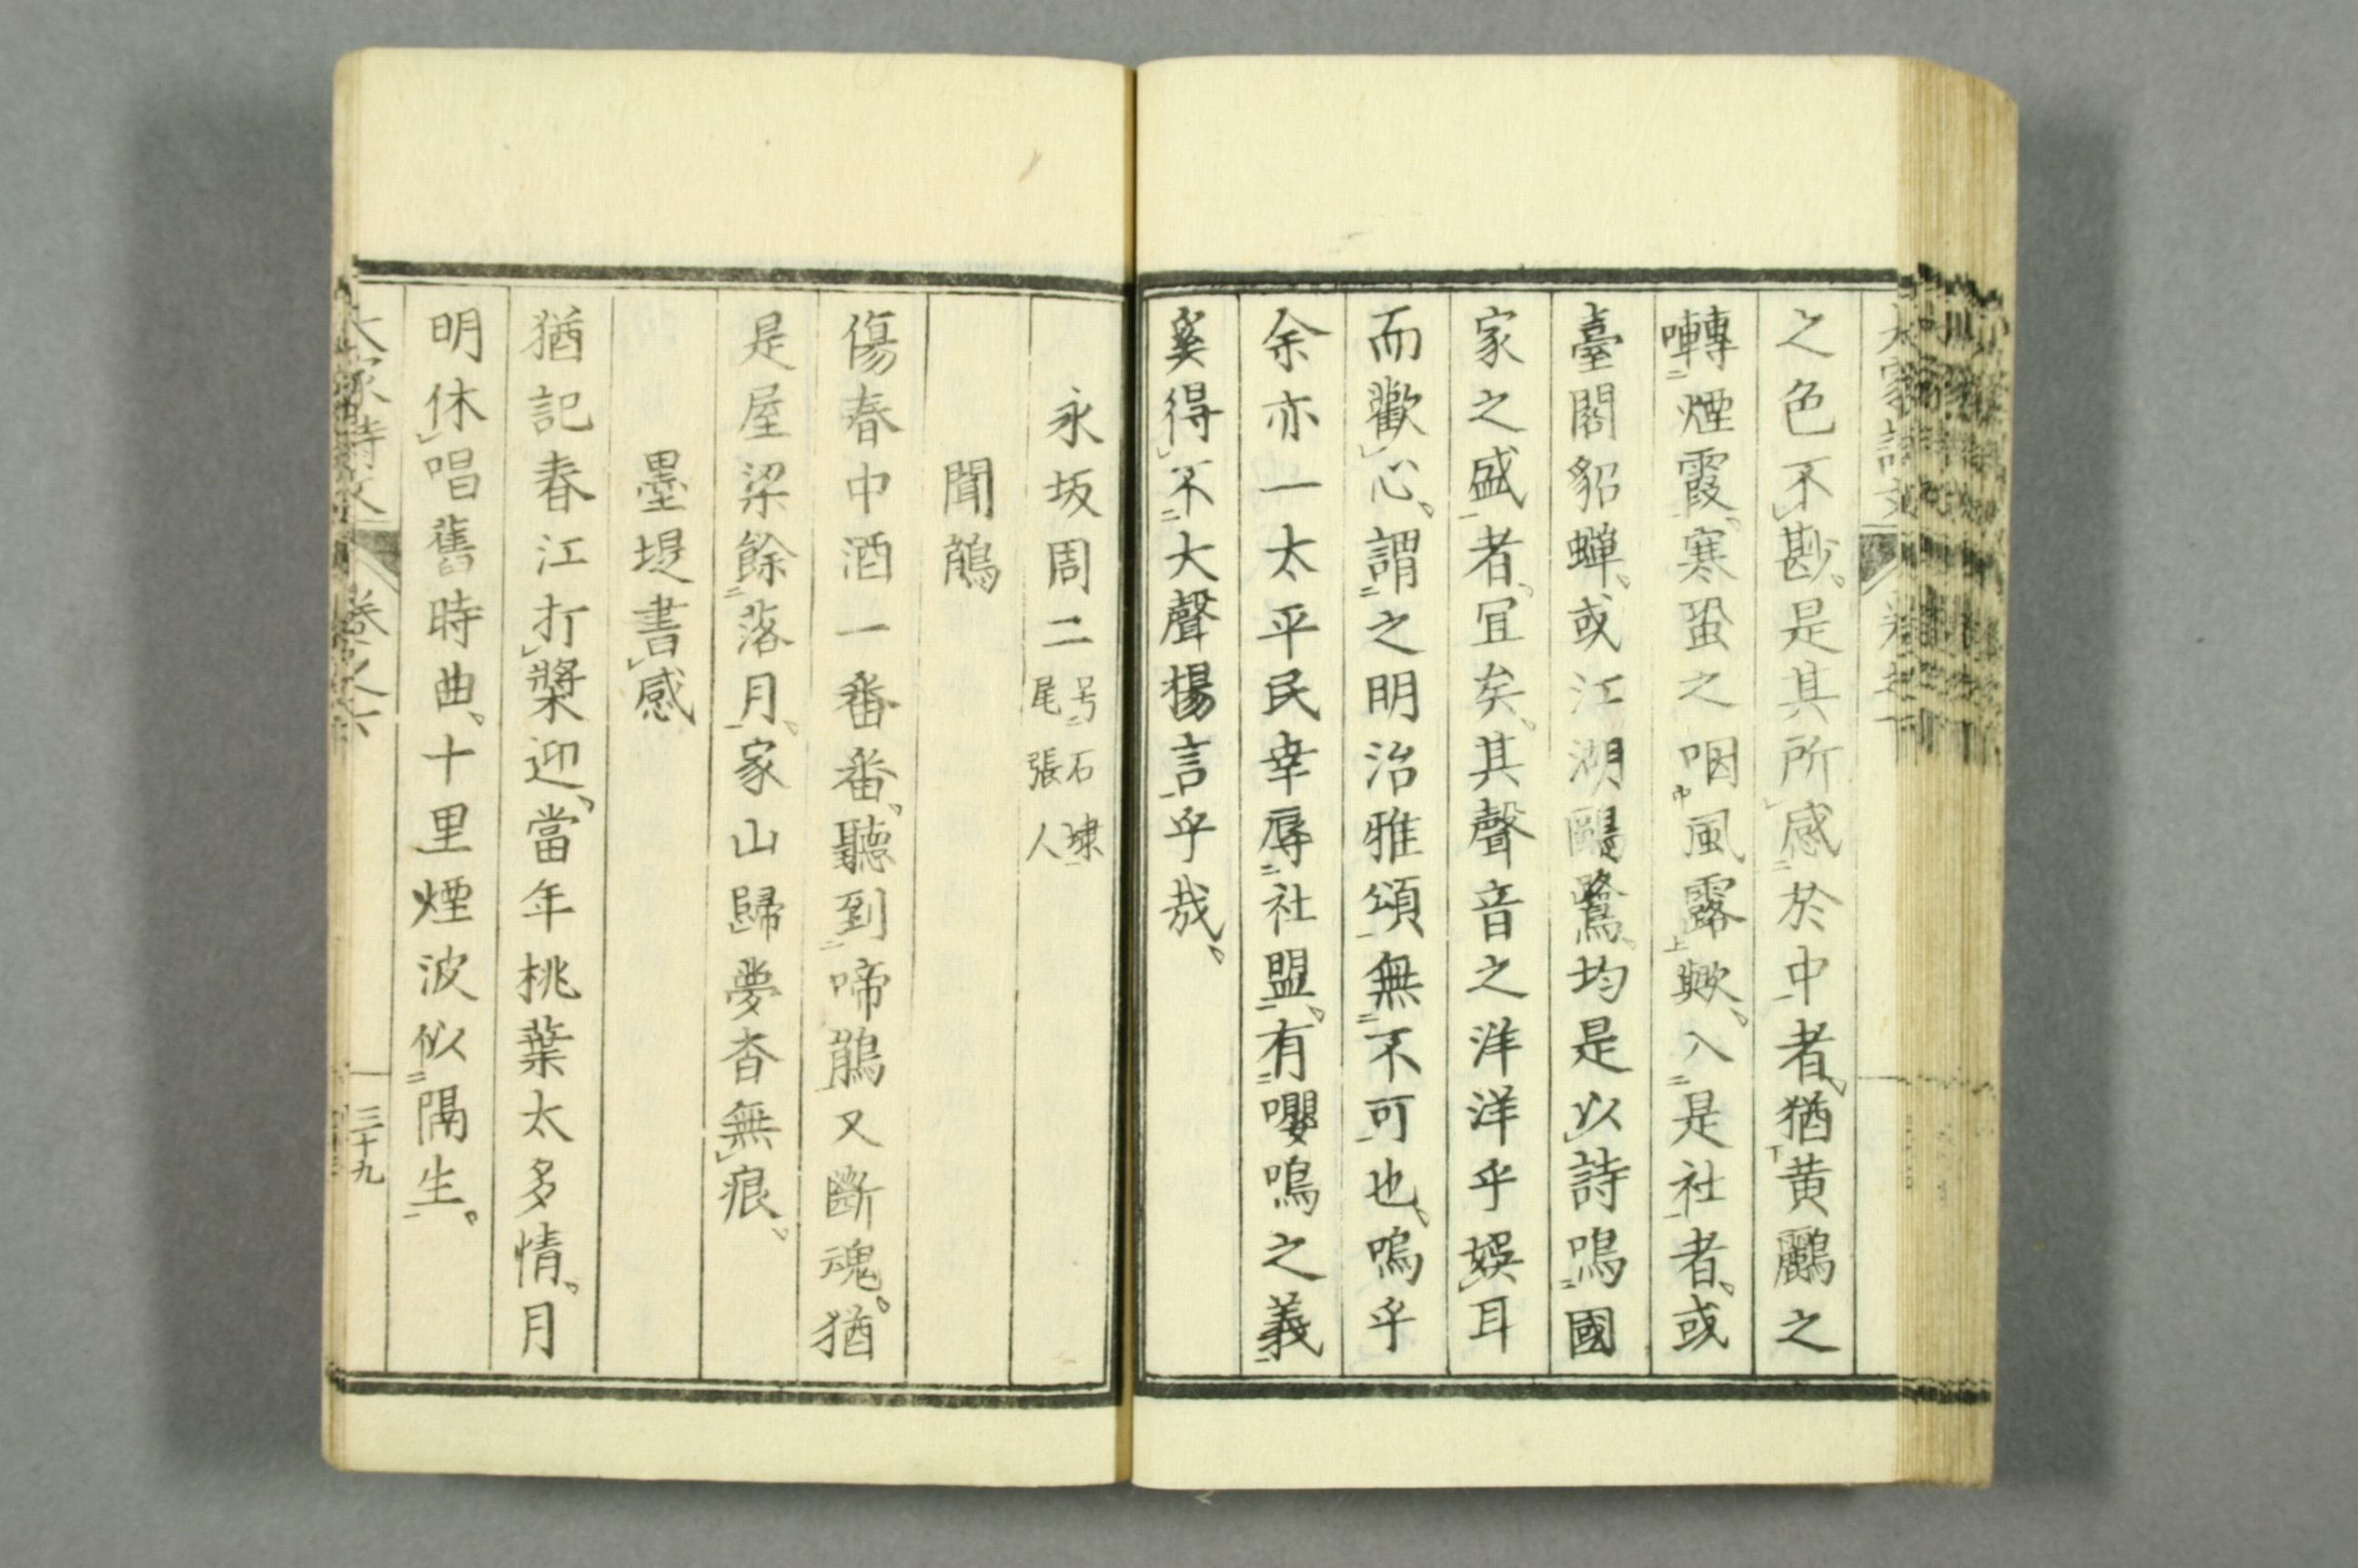 之色不勘、是其所感於中者、猶黃鸝之
囀煙霞、寒蛩之咽風露歟、入是社者、或
臺閣貂蟬、或江湖鷗鷺、均是以詩鳴國
家之盛者、冝矣、其聲音之洋洋乎娯耳
而歡心、謂之明治雅頌、無不可也、嗚乎
余亦一太平民幸辱社盟、有嚶鳴之義
奚得不大聲揚言乎哉、
永坂周二 号石埭 尾張人
聞鵑
傷春中酒一番番、聽到啼鵑又斷魂。猶
是屋梁餘落月、家山歸夢杳無痕、
墨堤書感
猶記春江打槳迎、當年桃葉太多情。月
明休唱舊時曲、十里煙波似隔生。
大家詩文 卷之六 三十九